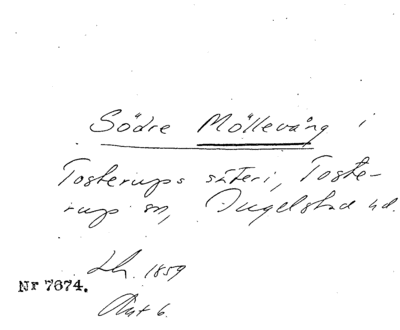 Södre Möllevång i
Tosterups säteri, Toste-
rup sn, Ingelstad hd.
Lh. 1859
Nr 7674.
Akt 6.